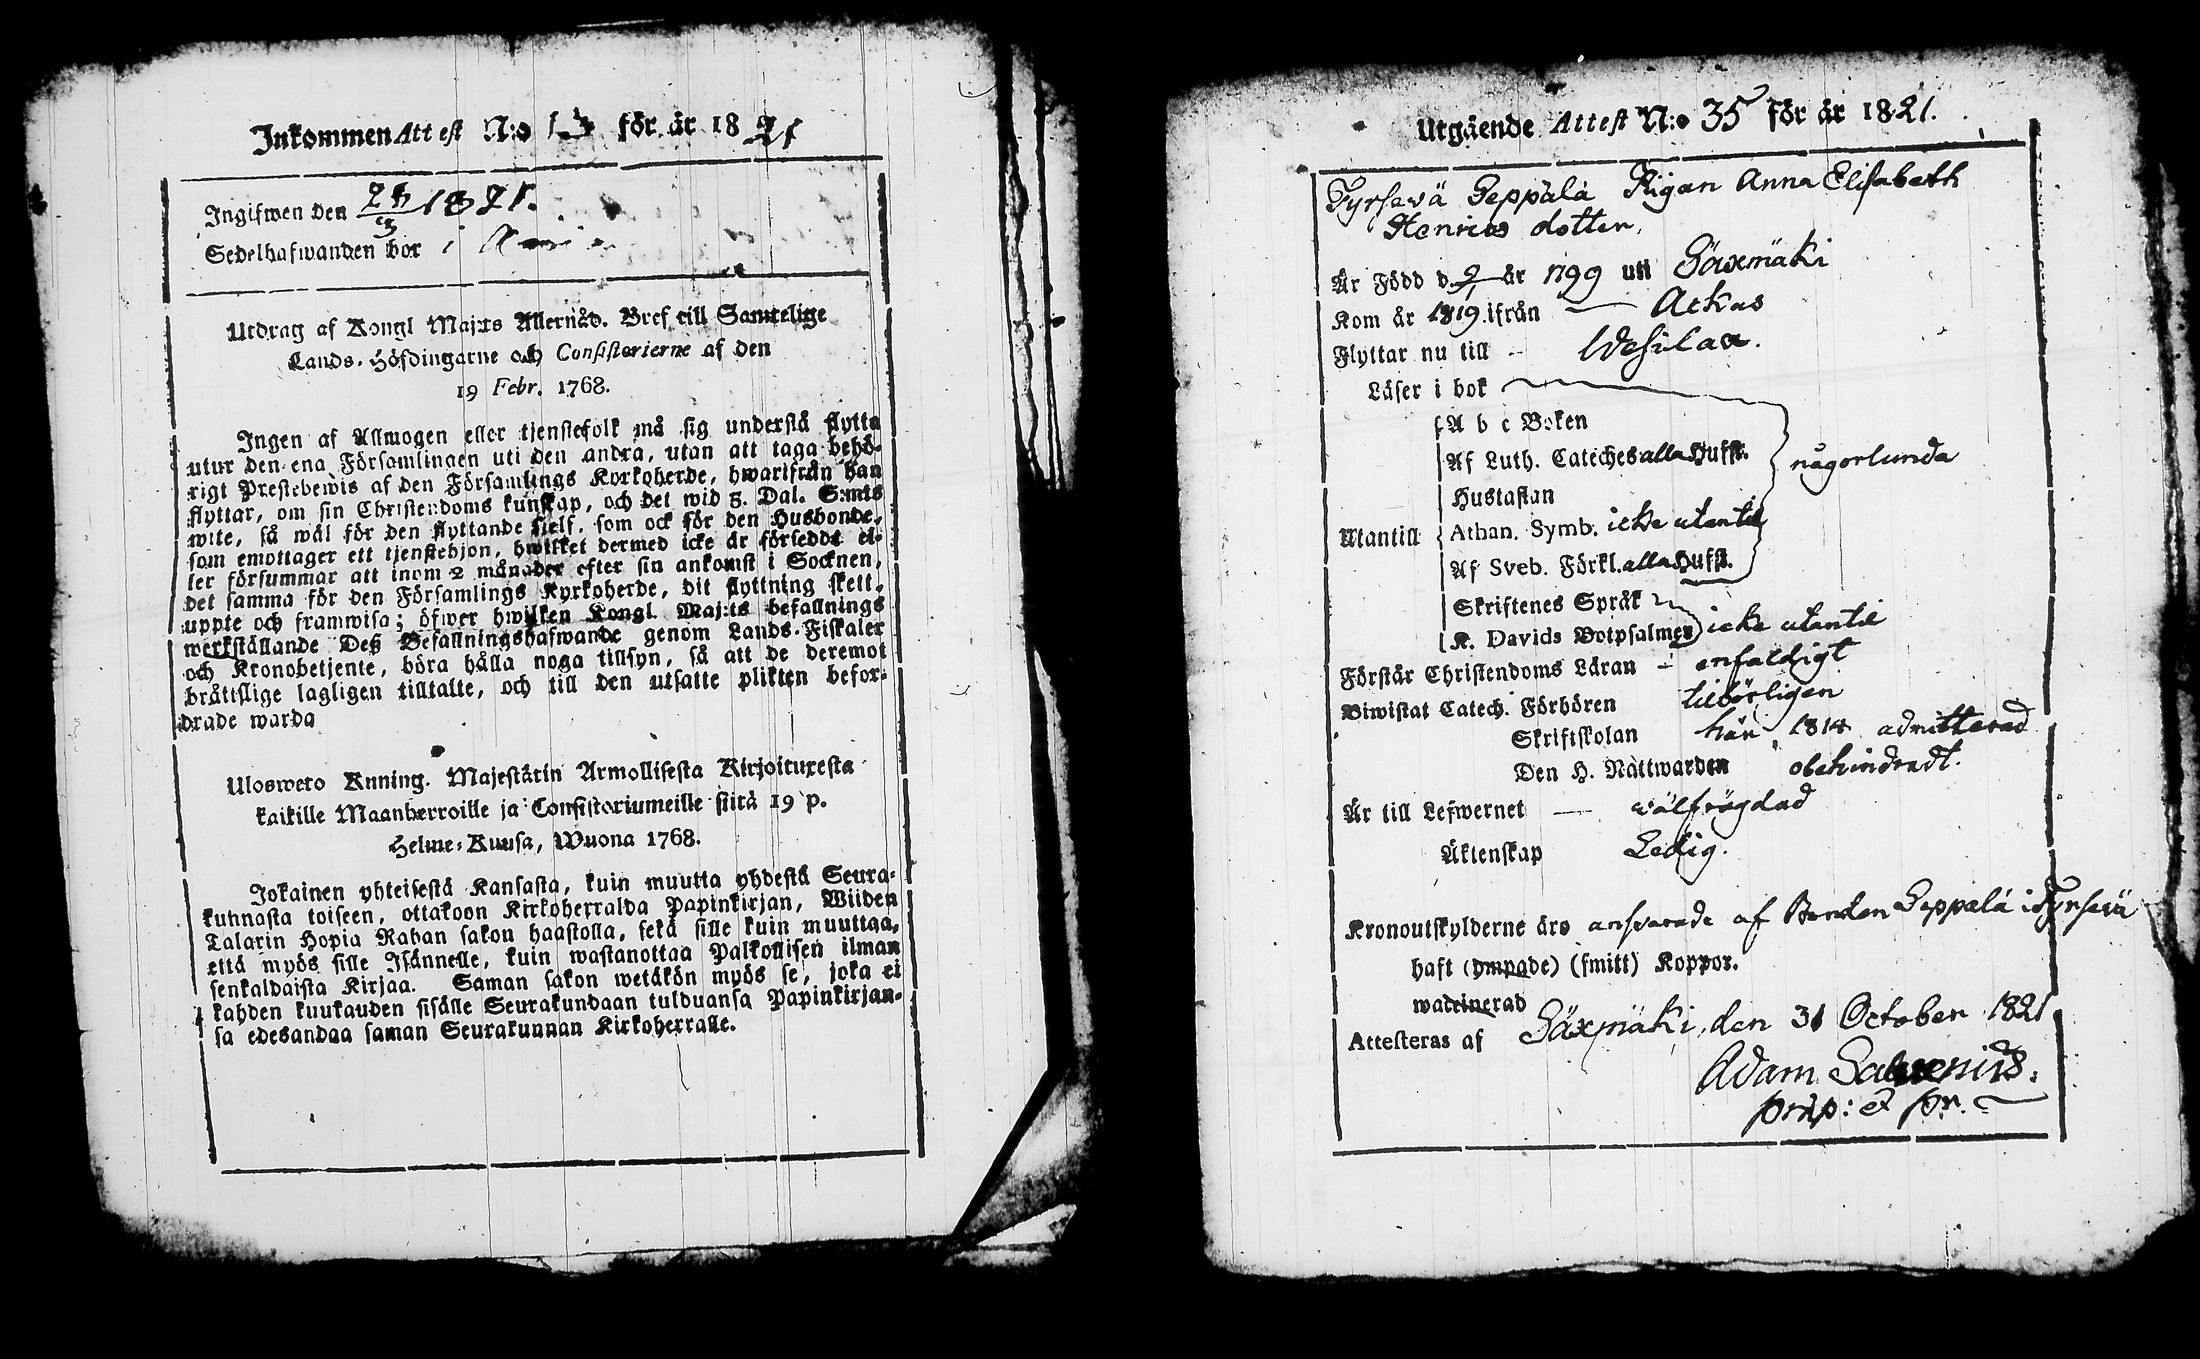 Inkommen Attest N:o 13 för år 1821
Ingifwen den 1821.
Sedelhafwanden bor i
Utdrag af Kongl Maj:ts Allernåd. Bref till Samtelige
Lands-Höfdingarne och Consistorierne af den
19 Febr. 1768.
Ingen af Allmogen eller tjenstefolk må sig understå flytta
utur den ena Församlingen uti den andra, utan att taga behö-
rigt Prestebewis af den Församlings Kyrkoherde, hwarifrån han
flyttar, om sin Christendoms kunskap, och det wid 5. Dal. S:mts
wite, så wäl för den flyttande sjelf, som ock för den Husbonde,
som emottager ett tjenstehjon, hwilket dermed icke är försedt el-
ler försummar att inom 2 månader efter sin ankomst i Socknen,
det samma för den Församlings Kyrkoherde, dit flyttning skett,
uppte och framwisa; öfwer hwilken Kongl. Maj:ts befallnings
werkställande Deß Befallningshafwande genom Lands-Fiskaler
och Kronobetjente, böra hålla noga tillsyn, så att de deremot
bråttslige lagligen tilltalte, och till den utsatte plikten befor-
drade warda
Ulosweto Knning. Majestätin Armollisesta Kirjoituxesta
kaikille Maanherroille ja Consistoriumeille siitä 19 p.
Helme-Kuusa, Wuona 1768.
Jokainen yhteisestä Kansasta, kuin muutta yhdestä Seura-
kunnasta toiseen, ottakoon Kirkoherralda Papinkirjan, Wiiden
Talarin Hopia Rahan sakon haastolla, sekä sille kuin muuttaa,
että myös sille Isännelle, kuin wastanottaa Palkollisen ilman
senkaldaista Kirjaa. Saman sakon wetäkön myös se, joka ei
kahden kuukauden sisälle Seurakundaan tulduansa Papinkirjan-
sa edesandaa saman Seurakunnan Kirkoherralle.
Utgående Attest N:o 35 för år 1821.
Tyrsevä Seppälä Pigan Anna Elisabeth
Henrics dotter,
Är Född d 9/ år 1799 uti Säxmäki
Kom år 1819 ifrån Ackas
Flyttar nu till Wesilax.
Läser i bok
A b c Boken
Af Luth. Cateches alla Hufst.
någorlunda
Hustaflan
Utantill Athan. Symb. icke utantil
Af Sveb. Förkl. alla Hufst.
Skriftenes Språk
K. Davids Botpsalmer icke utantil
Förstår Christendoms Läran enfaldigt
Biwistat Catech. Förhören tilbörligen
Skriftskolan här 1814 admitterad
Den H. Nattwarden obehindradt.
Är till Lefwernet wälfrägdad
Äktenskap Ledig.
Kronoutskylderne äro ansvarade af Bonden Seppälä i Tyrsevä
haft (ympade) (smitt) Koppor.
waccinerad
Attesteras af Säxmäki, den 31 October 1821
Adam